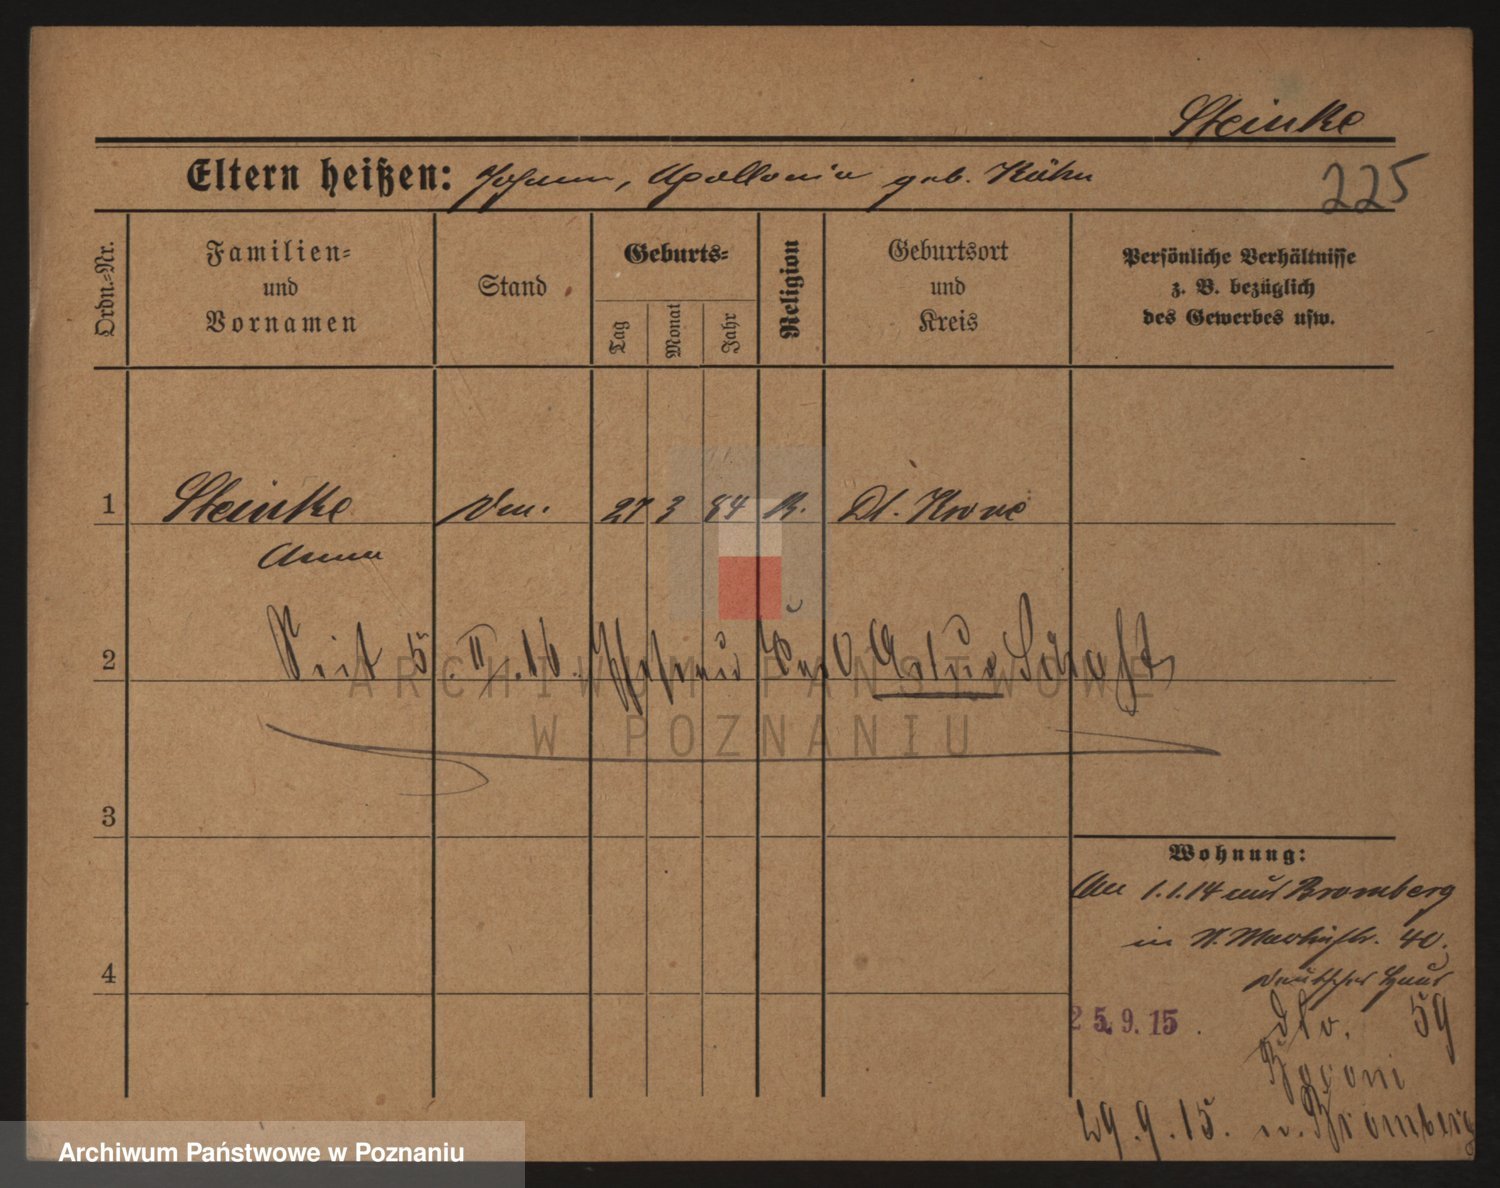 Steinke
Eltern heißen: Johann, Apollonia geb. Kühn
225
Ordn.=Nr.
Familien=
und
Vornamen
Stand
Geburts=
Tag
Monat
Jahr
Religion
Geburtsort
und
Kreis
Persönliche Verhältnisse
z. B. bezüglich
des Gewerbes usw.
1 Steinke 27 3 84 K. Dt. Krone
Anna
2 Seit 5. II. 16.
ARCHIWUM PAŃSTWOWE
W POZNANIU
3
Wohnung:
An 1.1.14 aus Bromberg
in 40.
4
Deutsches Haus
25.9.15. dto. 59
29.9.15. n. Bromberg
Archiwum Państwowe w Poznaniu